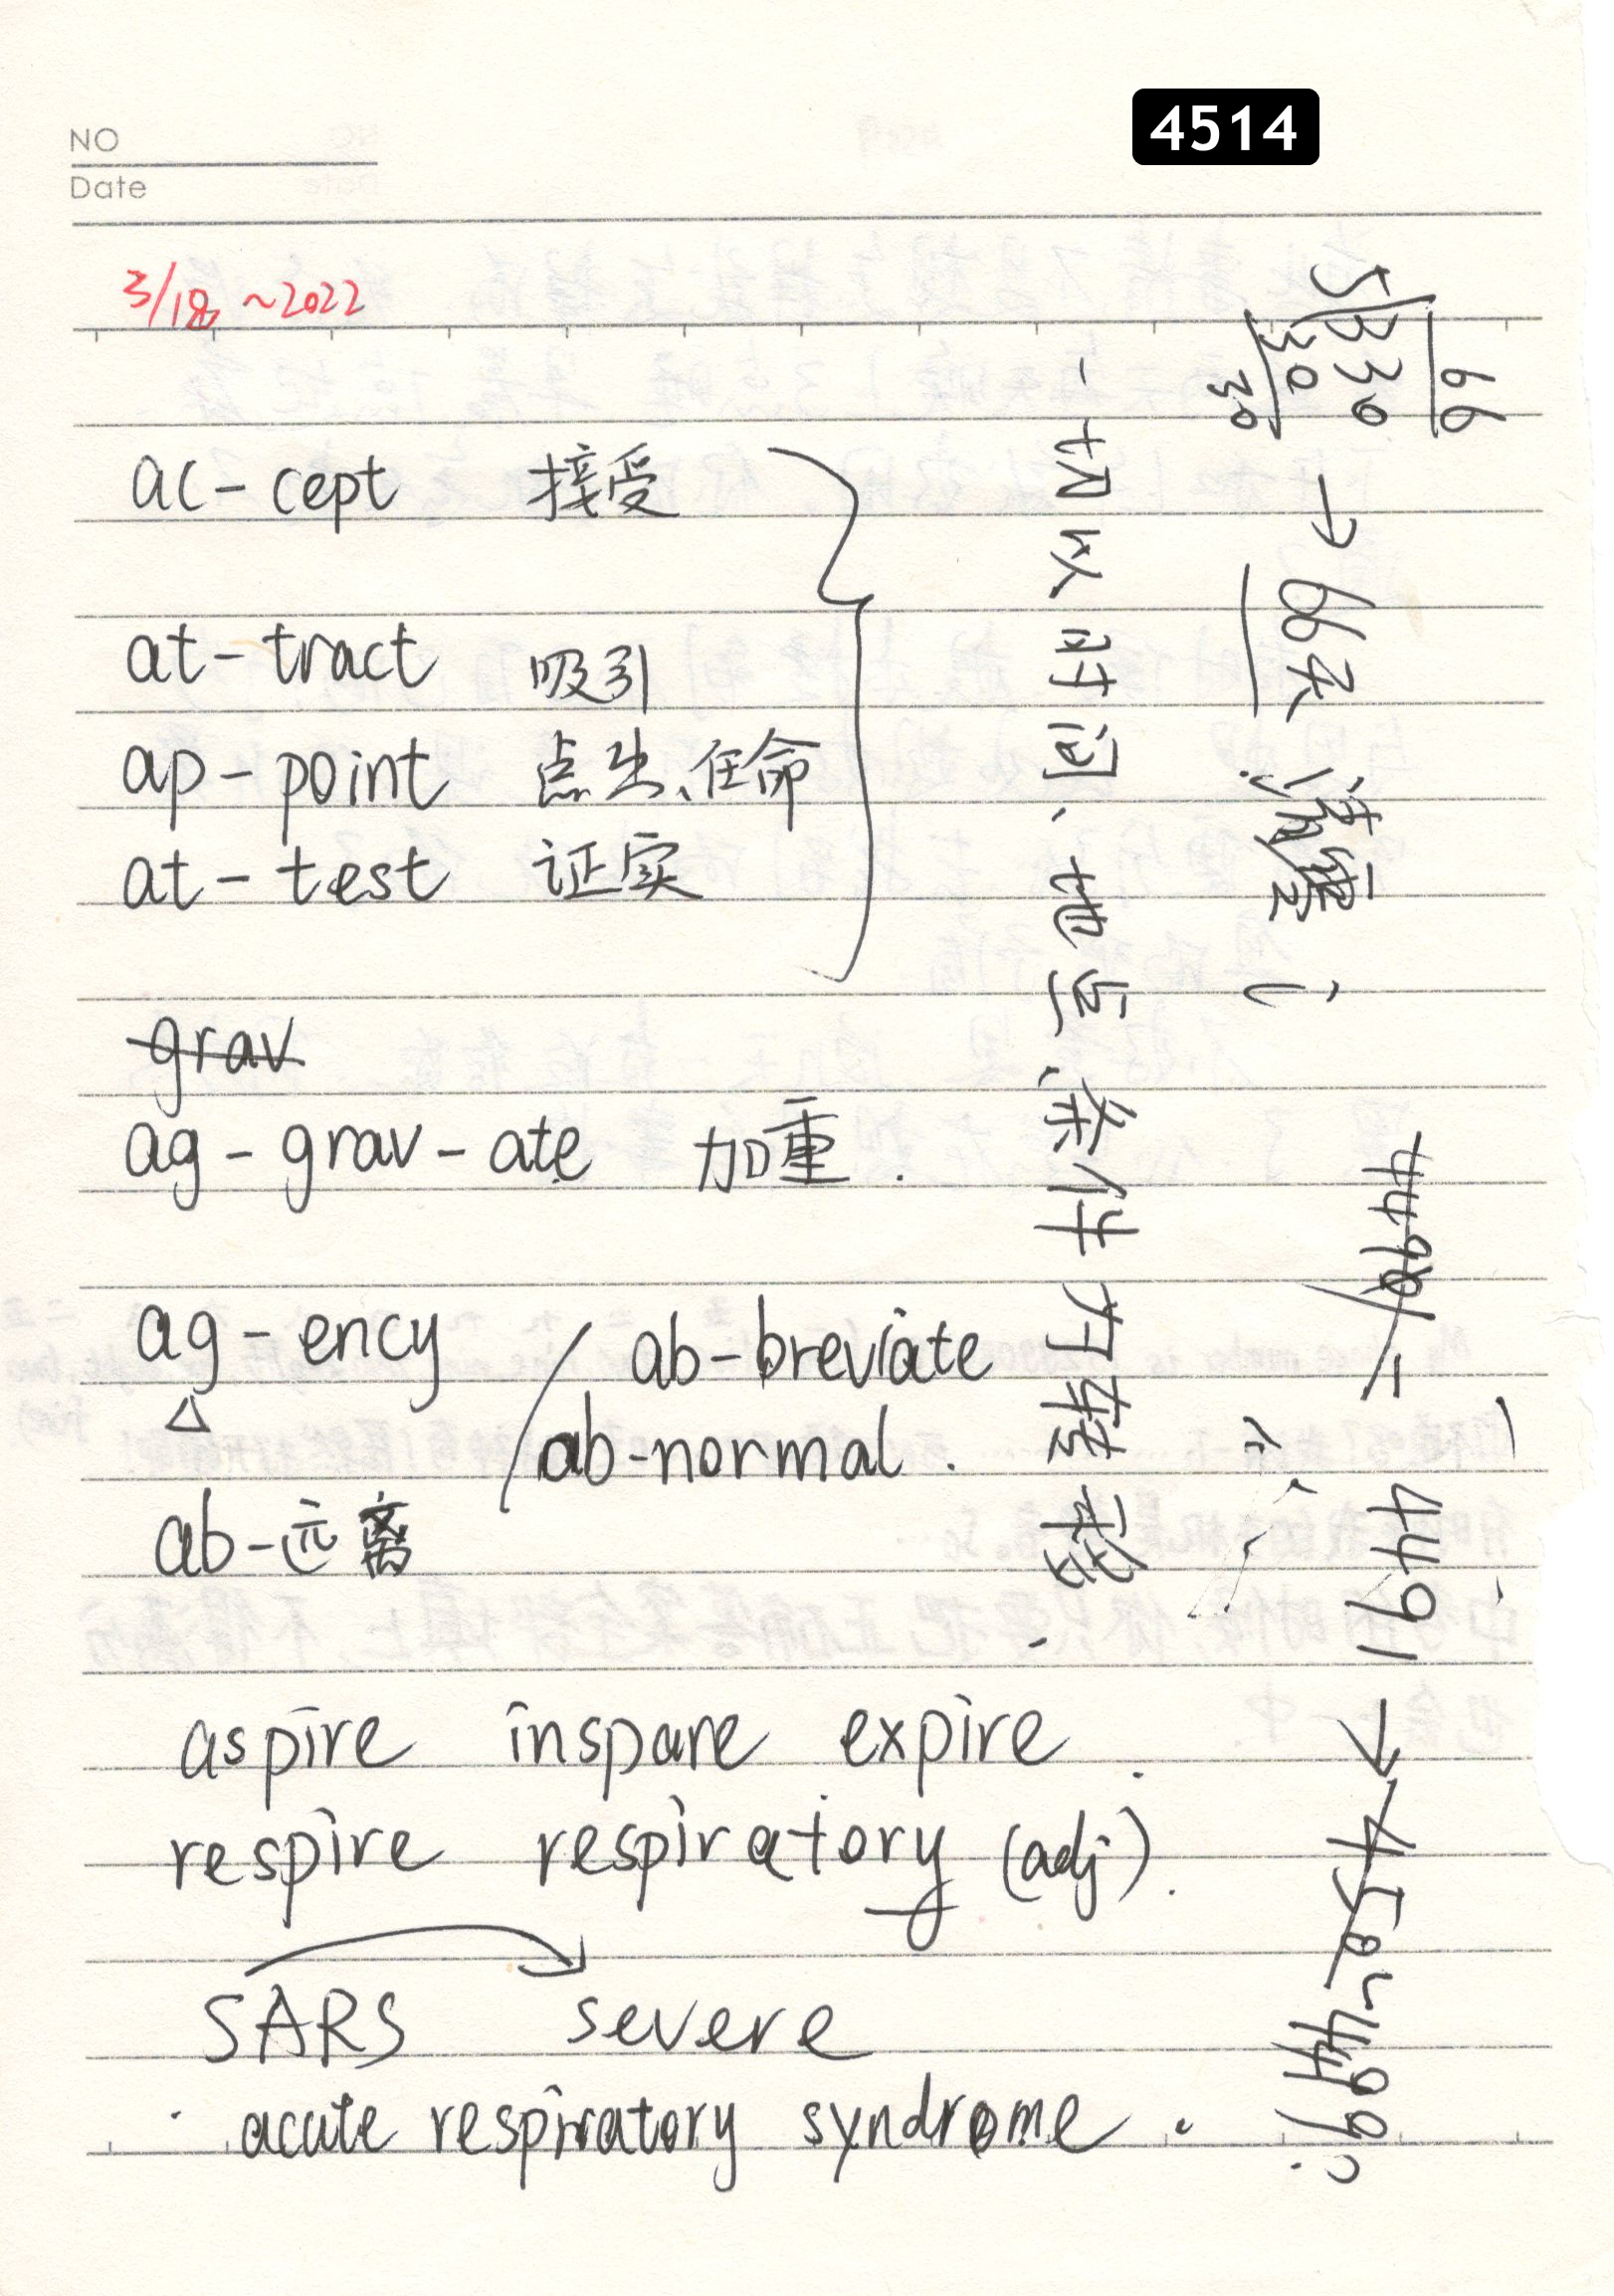 4514
NO
Date
3/18 ~2022
ac-cept 接受
at-tract 吸引
ap-point 点出、任命
at-test 证实
grav
ag-grav-ate 加重.
ag-ency / ab-breviate
△ ab-normal.
ab-远离
aspire inspare expire.
respire respiratory (adj).
SARS severe
acute respiratory syndrome.
一切以时间、地点、条件为转移.
66
5 330
30
30
→ 66天
清零
4491 → 450